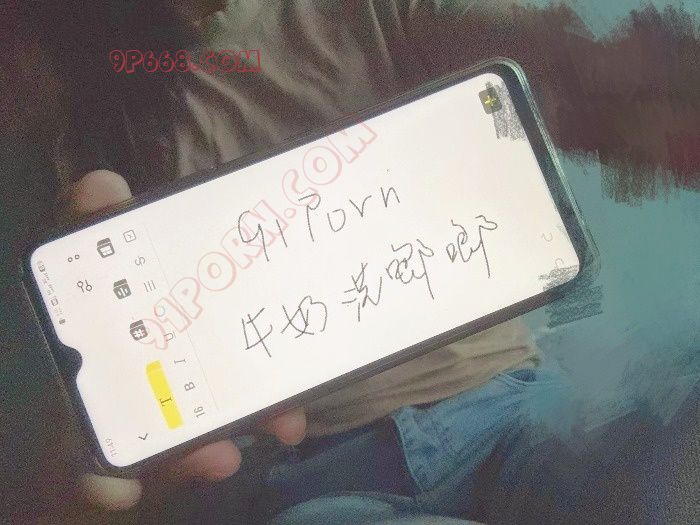 9P668.COM
91Porn
牛奶洗唧唧
91PORN.COM
$
U
16 B I T
11:49